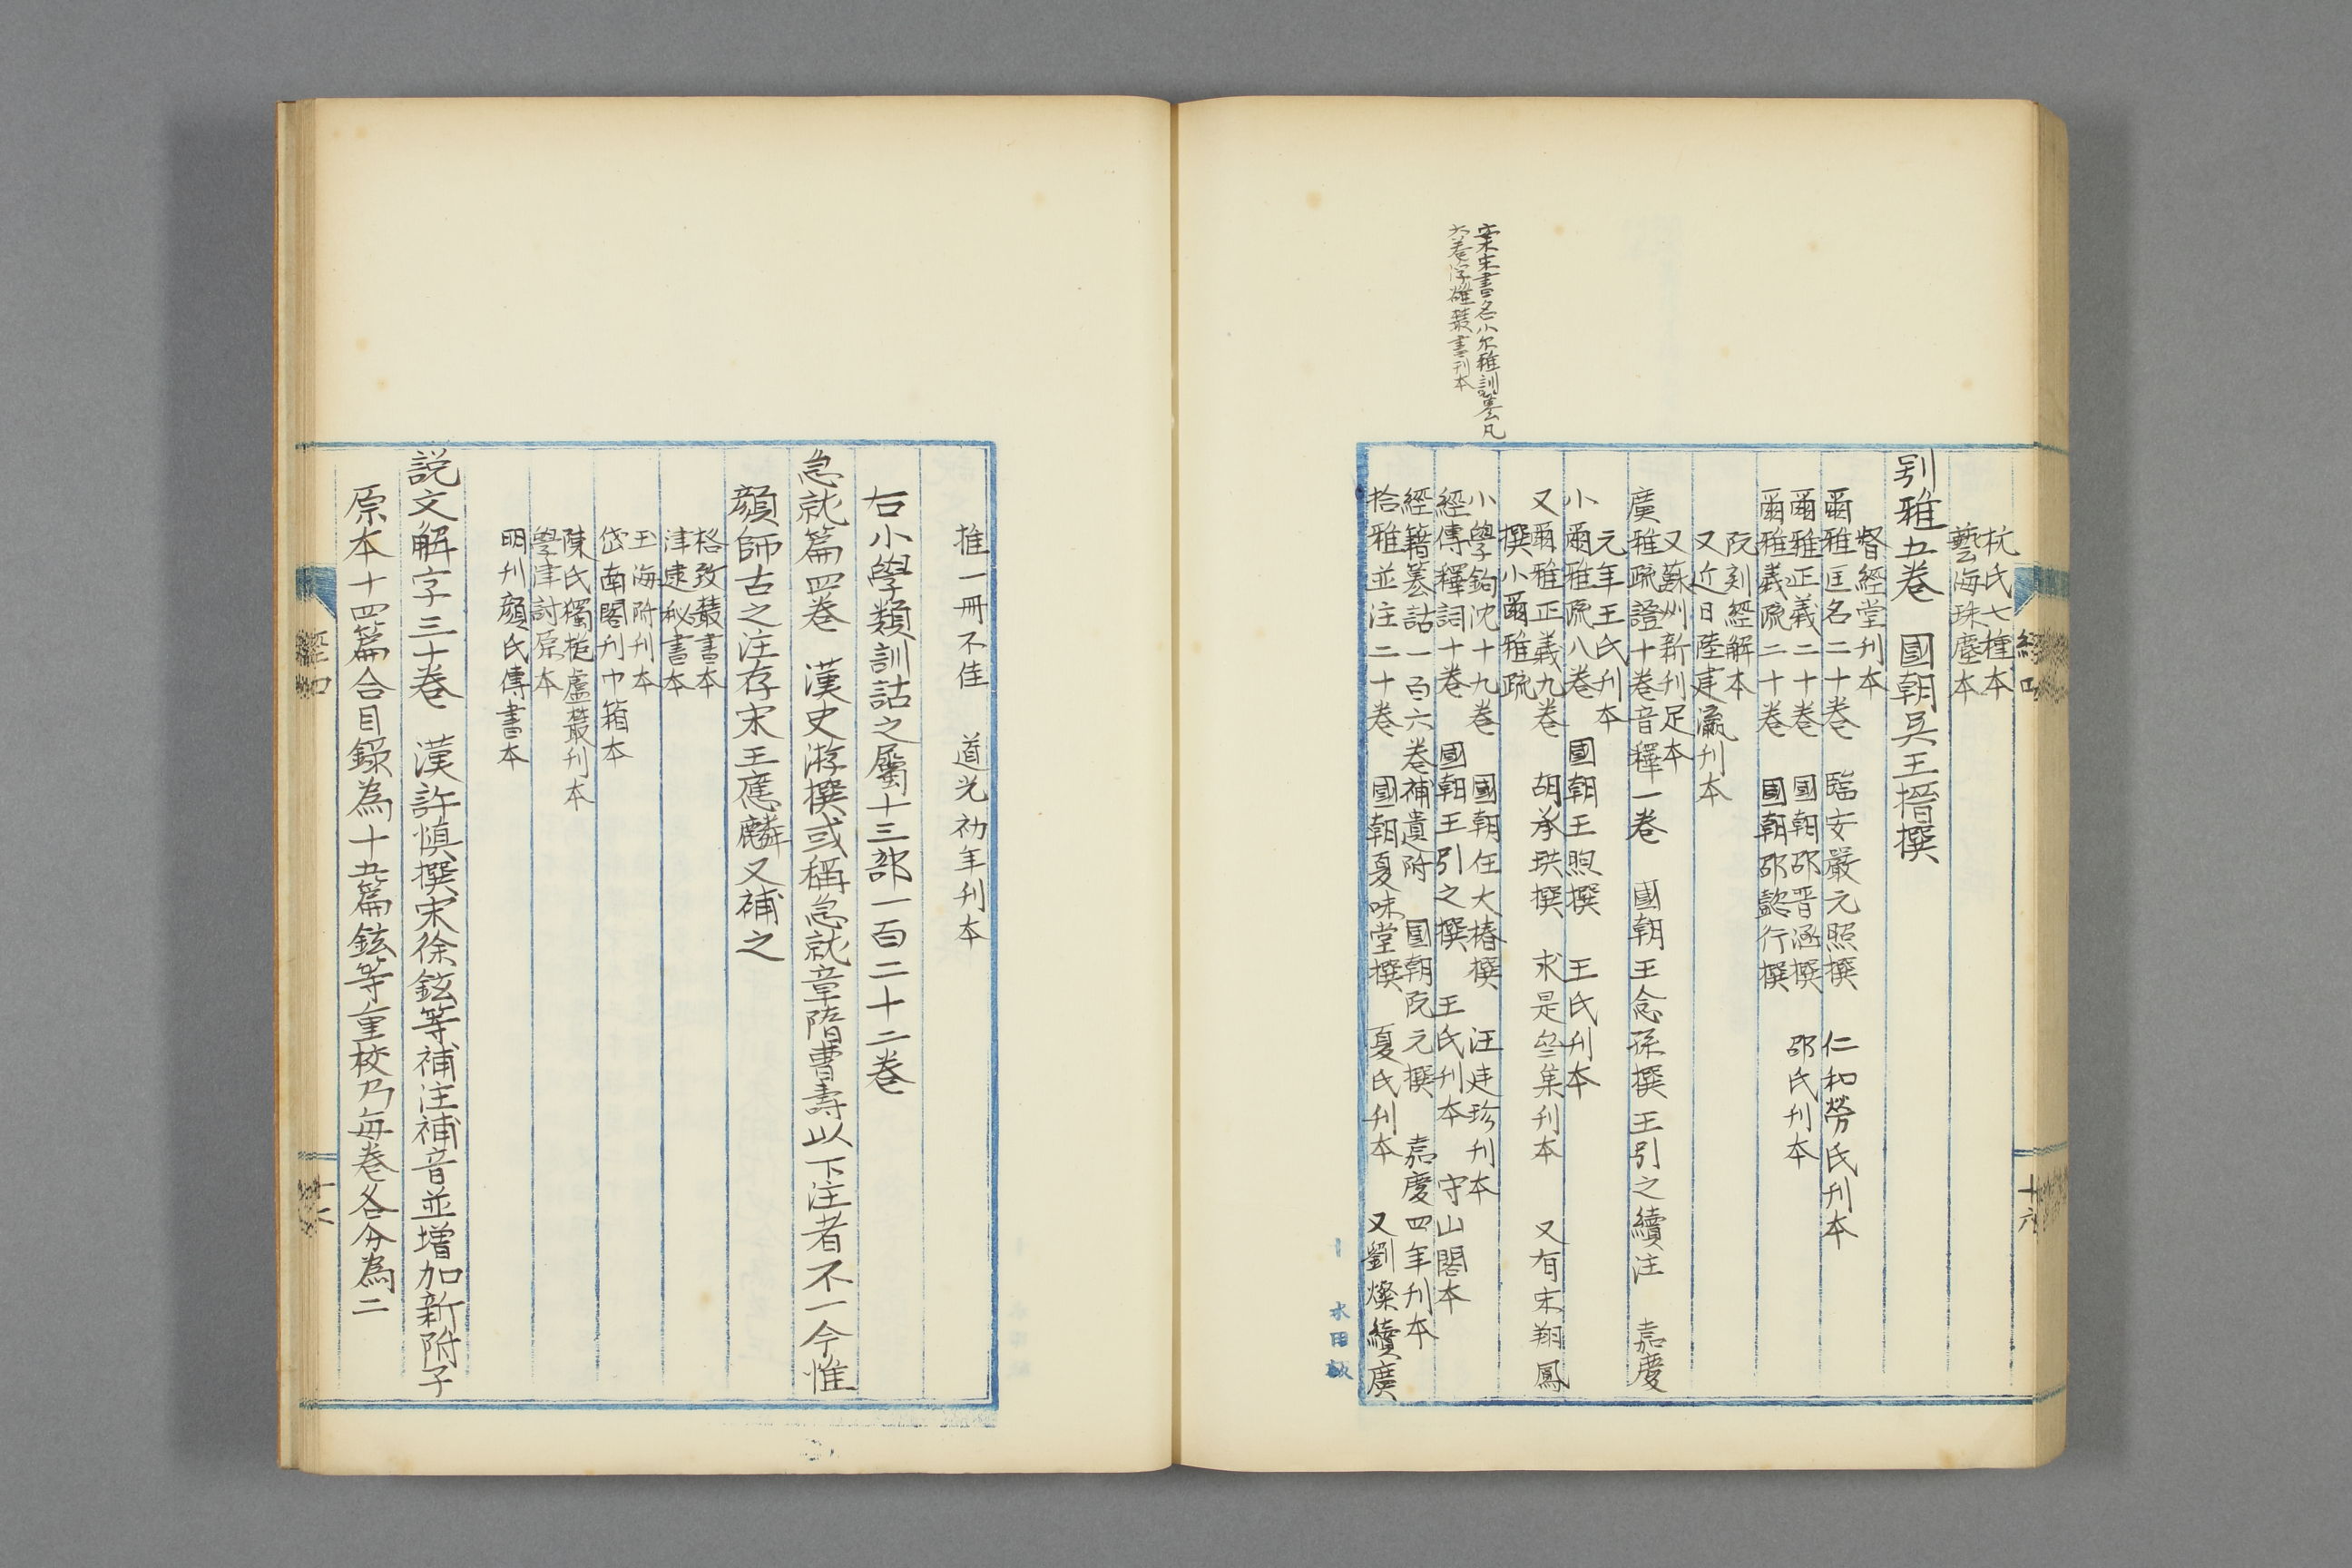 杭氏七種本
藝海珠塵本
别雅五卷　國朝吳玉搢撰
督經堂刊本
爾雅匡名二十卷　臨安嚴元照撰　仁和勞氏刊本
爾雅正義二十卷　國朝邵晋涵撰　邵氏刊本
爾雅義疏二十卷　國朝邵懿行撰
阮刻經解本
又近日陸建瀛刊本
又蘇州新刊足本
廣雅疏證十卷音釋一卷　國朝王念孫撰王引之續注　嘉慶
元年王氏刊本
小爾雅疏八卷　國朝王煦撰　王氏刊本
又爾雅正義九卷　胡承珙撰　求是叁集刊本　又有宋翔鳳
撰小爾雅疏
小學鉤沈十九卷　國朝任大椿撰　汪廷珍刊本
經傳釋詞十卷　國朝王引之撰　王氏刊本　守山閣本
經籍籑詁一百六卷補遺附　國朝阮元撰　嘉慶四年刊本
拾雅並注二十卷　國朝夏味堂撰　夏氏刊本　又劉燦續廣
案宋書名小尔雅訓纂凡
六卷浮谿叢書刊本
經四
十六
推一冊不佳　道光初年刊本
右小學類訓詁之屬十三部一百二十二卷
急就篇四卷　漢史游撰或稱急就章隋曹壽以下注者不一今惟
顏師古之注存宋王應麟又補之
格致叢書本
津逮秘書本
玉海附刊本
岱南閣刊巾箱本
陳氏獨抱廬叢刊本
學津討原本
明刊顏氏傳書本
説文解字三十卷　漢許慎撰宋徐鉉等補注補音並增加新附子
原本十四篇合目錄為十五篇鉉等重校乃每卷各分為二
經四